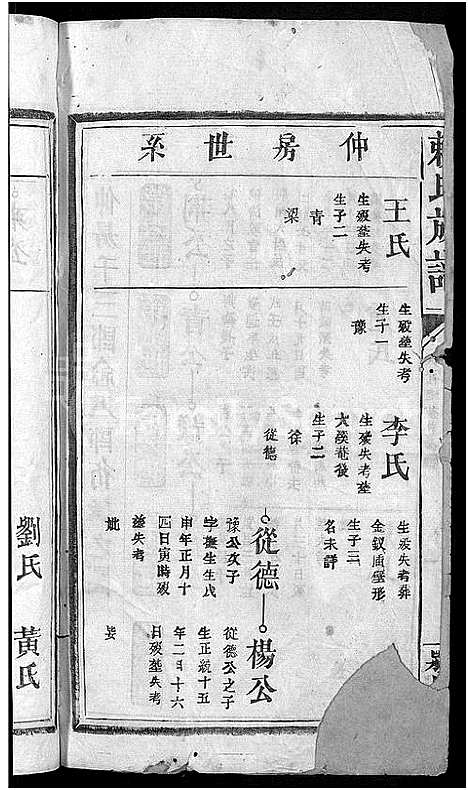 賴氏族譜
仲房世系
王氏
生殁塟失考
生子二
青
梁
生殁塟失考
生子一
豫
李氏
生殁失考塟
大溪菴後
生子二
徐
從德
生殁失考葬
金釵
壁形
生子三
名未詳
從德
豫公次子
字
生生戊
申年正月十
四日寅時殁
塟失考
妣
楊公
從德公之子
生正統十五
年二月十六
日殁塟失考
妣
劉氏
黃氏